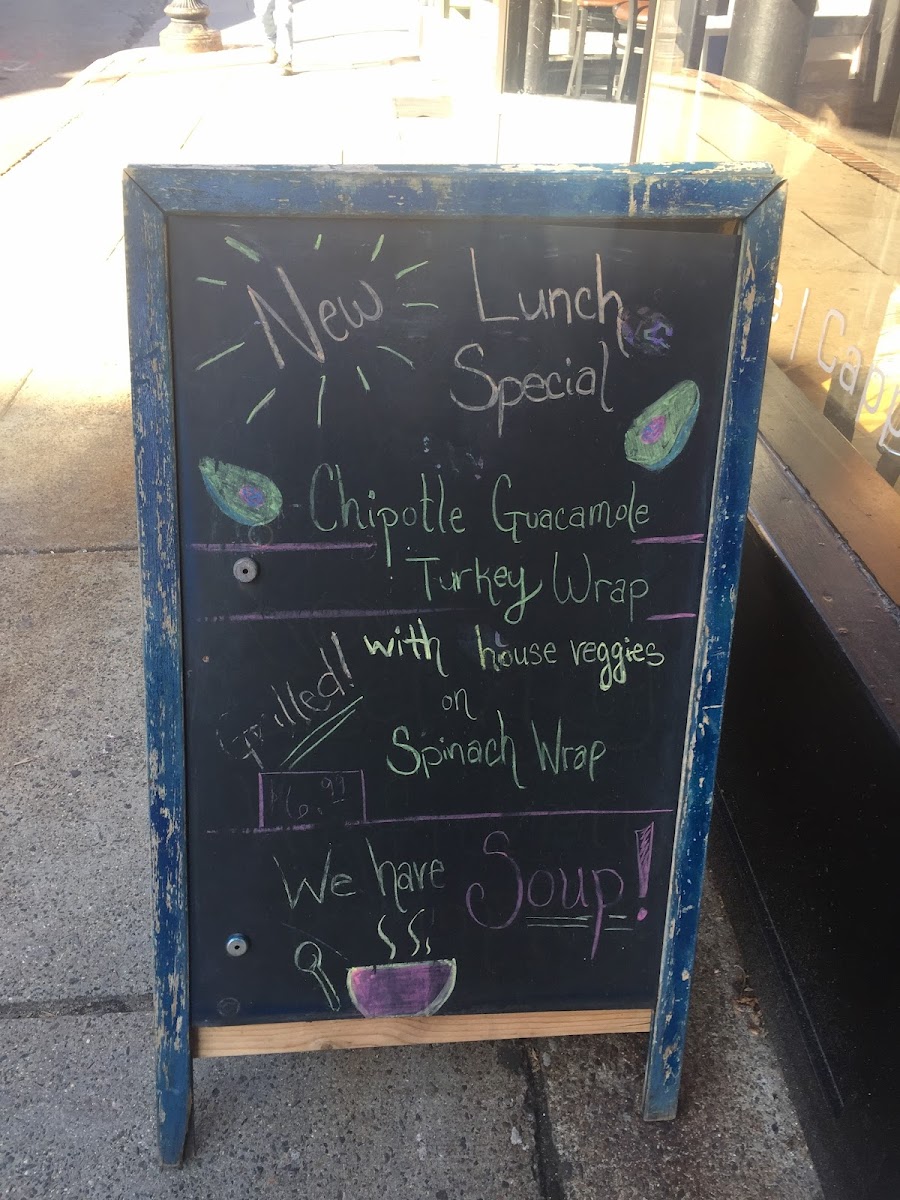 New
Lunch
Special
Chipotle Guacamole
Turkey Wrap
with house veggies
on
Grilled!
Spinach Wrap
$6.99
We have Soup!